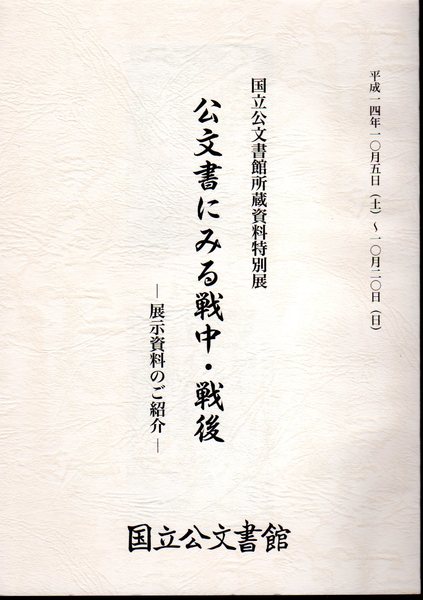 平成一四年一〇月五日（土）～一〇月二〇日（日）
国立公文書館所蔵資料特別展
公文書にみる戦中・戦後
―展示資料のご紹介―
国立公文書館